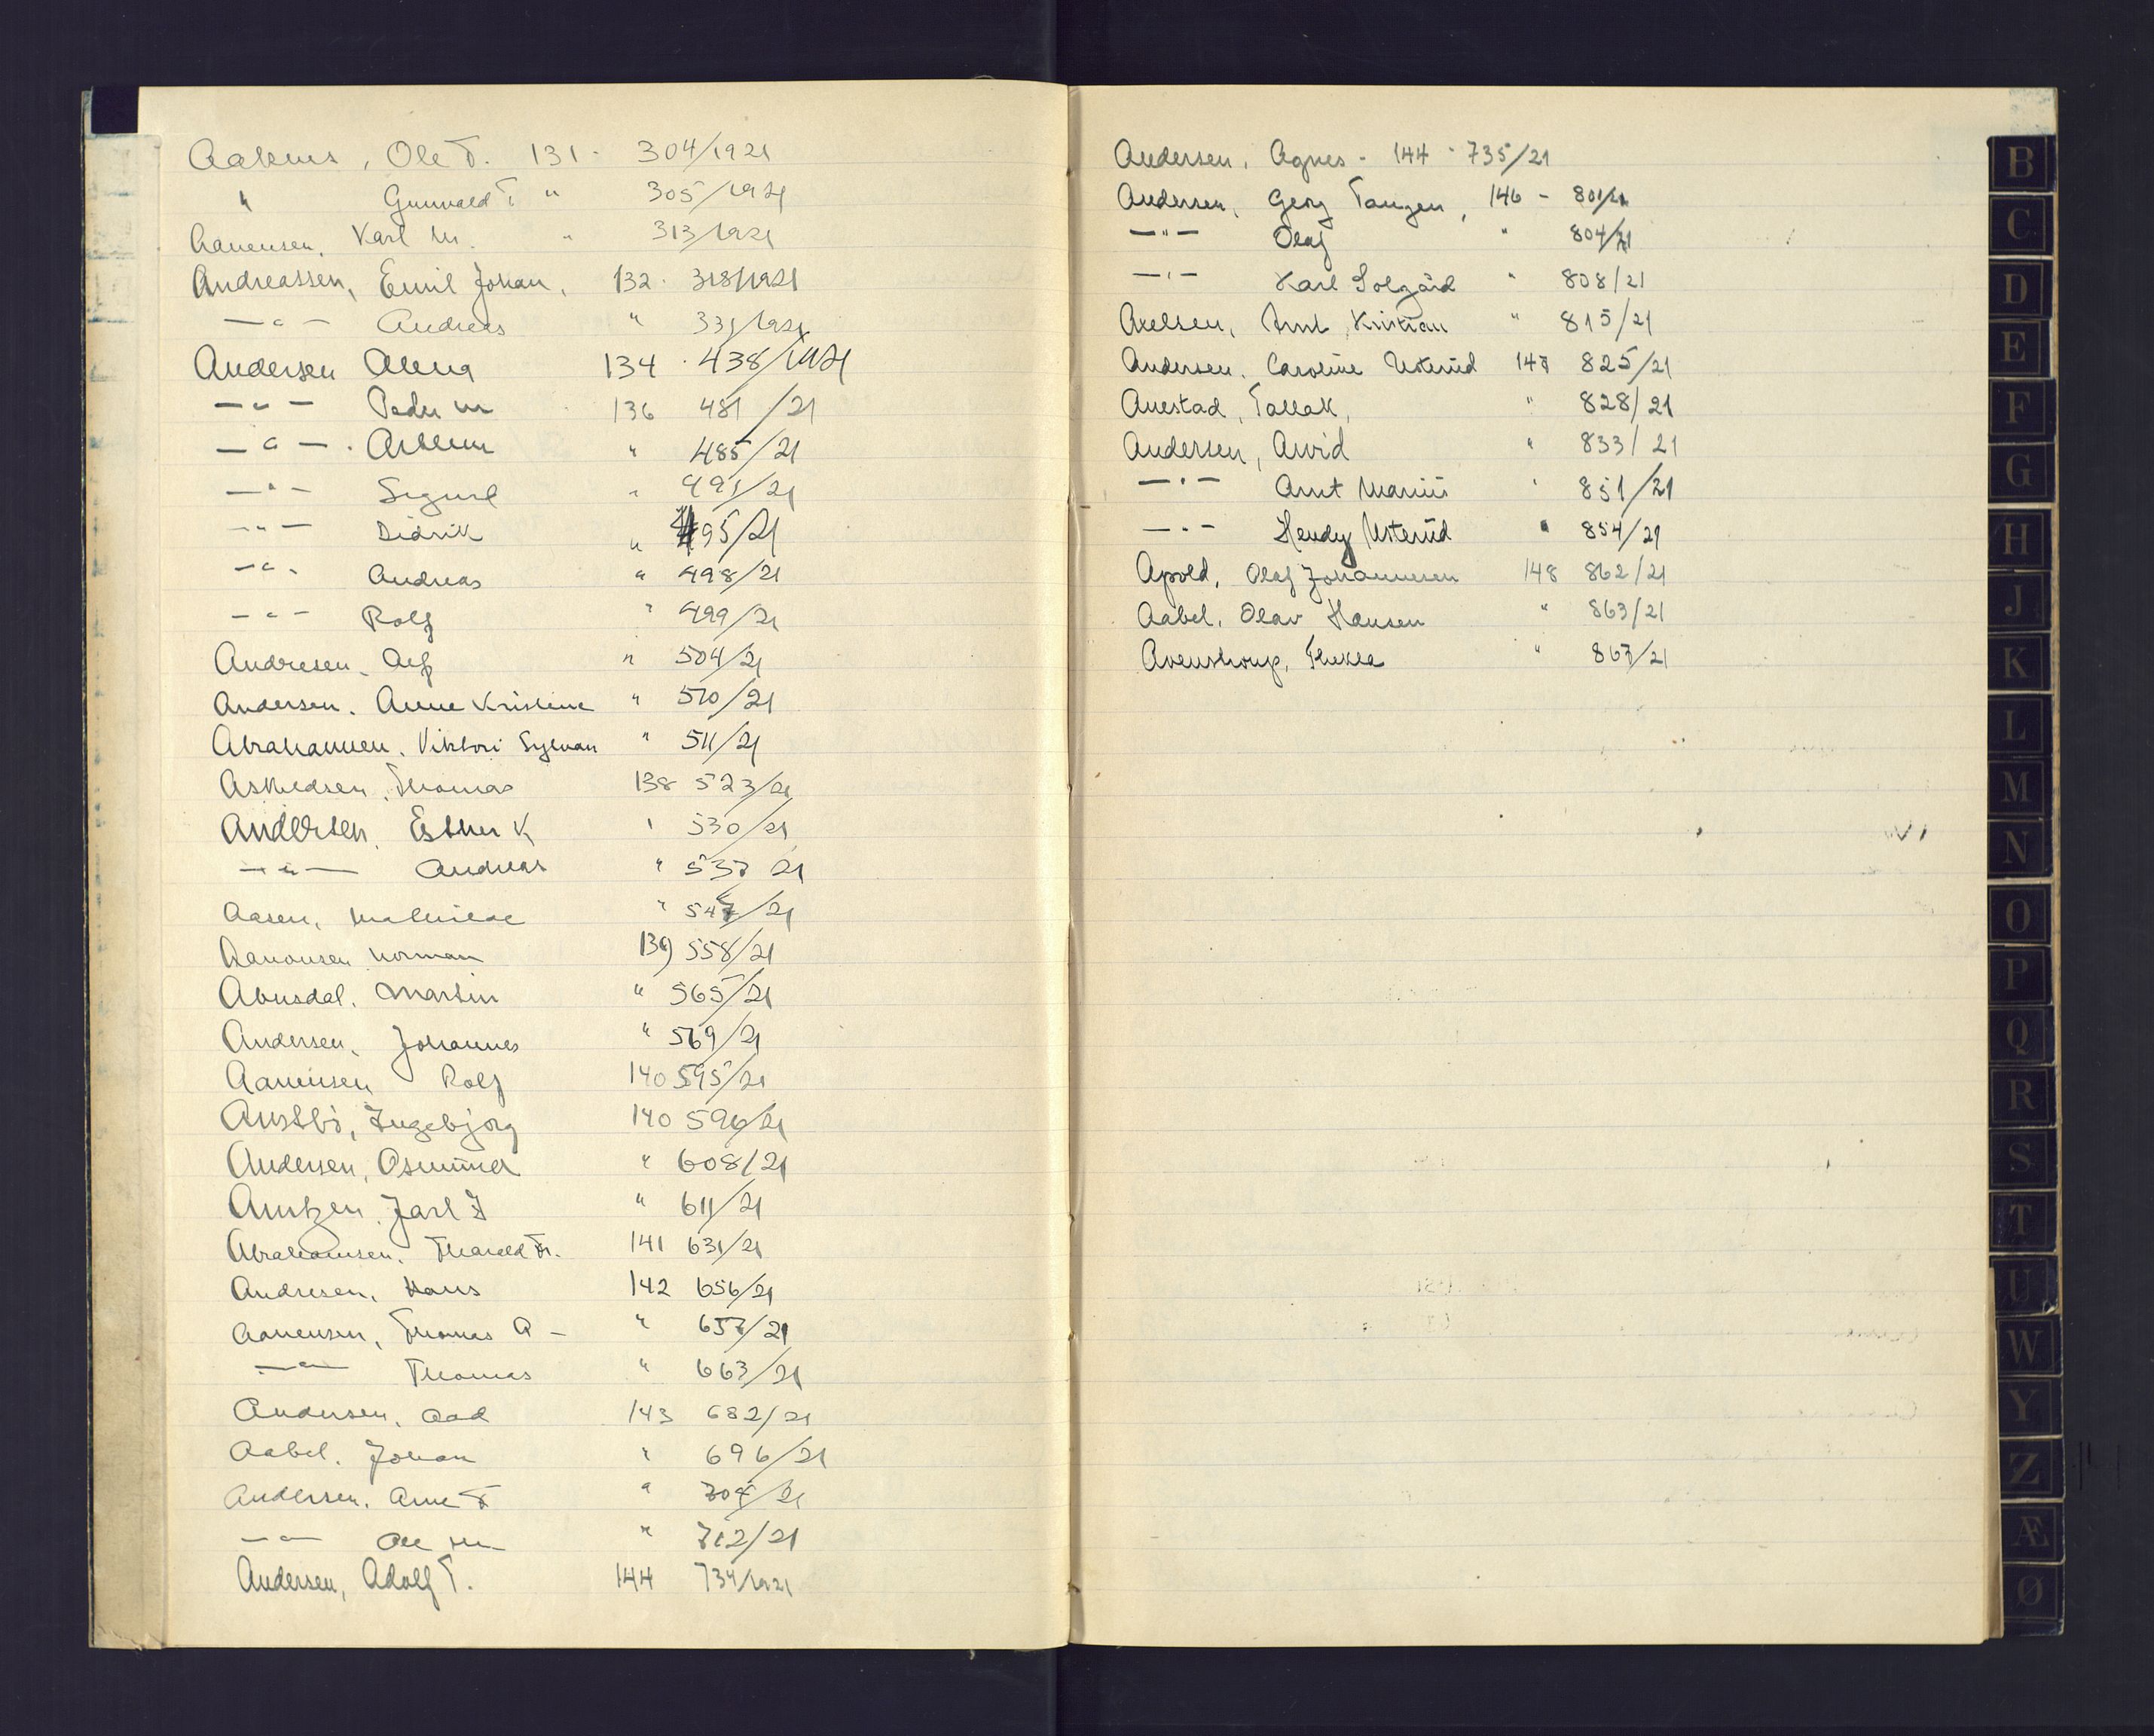 Aakens, Ole T. 131 - 304/1921
" Gunvald T. " 305/1921
Aanensen, Karl M. " 313/1921
Andreassen, Emil Johan, 132 - 318/1921
— " — Andreas " 331/1921
Andersen Alena 134 - 438/1921
— " — Peder M 136 481/21
— " — " 485/21
— " — Sigurd " 491/21
— " — Didrik " 495/21
— " — Andreas " 498/21
— " — Rolf " 499/21
Andresen, Alf " 504/21
Andersen, Anne Kristine " 510/21
Abrahamsen, Viktori Sylvan " 511/21
Askildsen, Thomas 138 523/21
Andersen, Esther K " 530/21
— " — Andreas " 537 21
Aasen, Mathilde " 547/21
Aanonsen Norman 139 558/21
Abusdal, Martin " 565/21
Andersen, Johannes " 569/21
Aanensen Rolf 140 595/21
Austbö, Ingebjörg 140 596/21
Andersen, Osmund " 608/21
Arntzen, Jarl I " 611/21
Abrahamsen, Tharald Fr. 141 631/21
Andresen, Hans 142 656/21
Aanensen, Thomas A - " 657/21
— " — Thomas " 663/21
Andersen, Aad 143 682/21
Aabel, Johan " 696/21
Anderssen, Arne T " 704/21
— " — Ole M " 712/21
Andersen, Adolf T. 144 734/1921
Andersen, Agnes - 144 - 735/21
Andersen, Georg Tangen, 146 - 801/21
— " — Olaf " 804/21
— " — Karl Solgård " 808/21
Axelsen, Arnt Kristian " 815/21
Andersen, Caroline Usterud 147 825/21
Auestad, Tallak, " 828/21
Andersen, Arvid " 833/21
— " — Arnt Marius " 851/21
— " — Hendy Usterud " 854/21
Apold, Olaf Johannesen 148 862/21
Aabel, Olav Hansen " 863/21
Avenstroup, Thekla " 867/21
B
C
D
E
F
G
H
J
K
L
M
N
O
P
Q
R
S
T
U
W
Y
Z
Æ
Ø